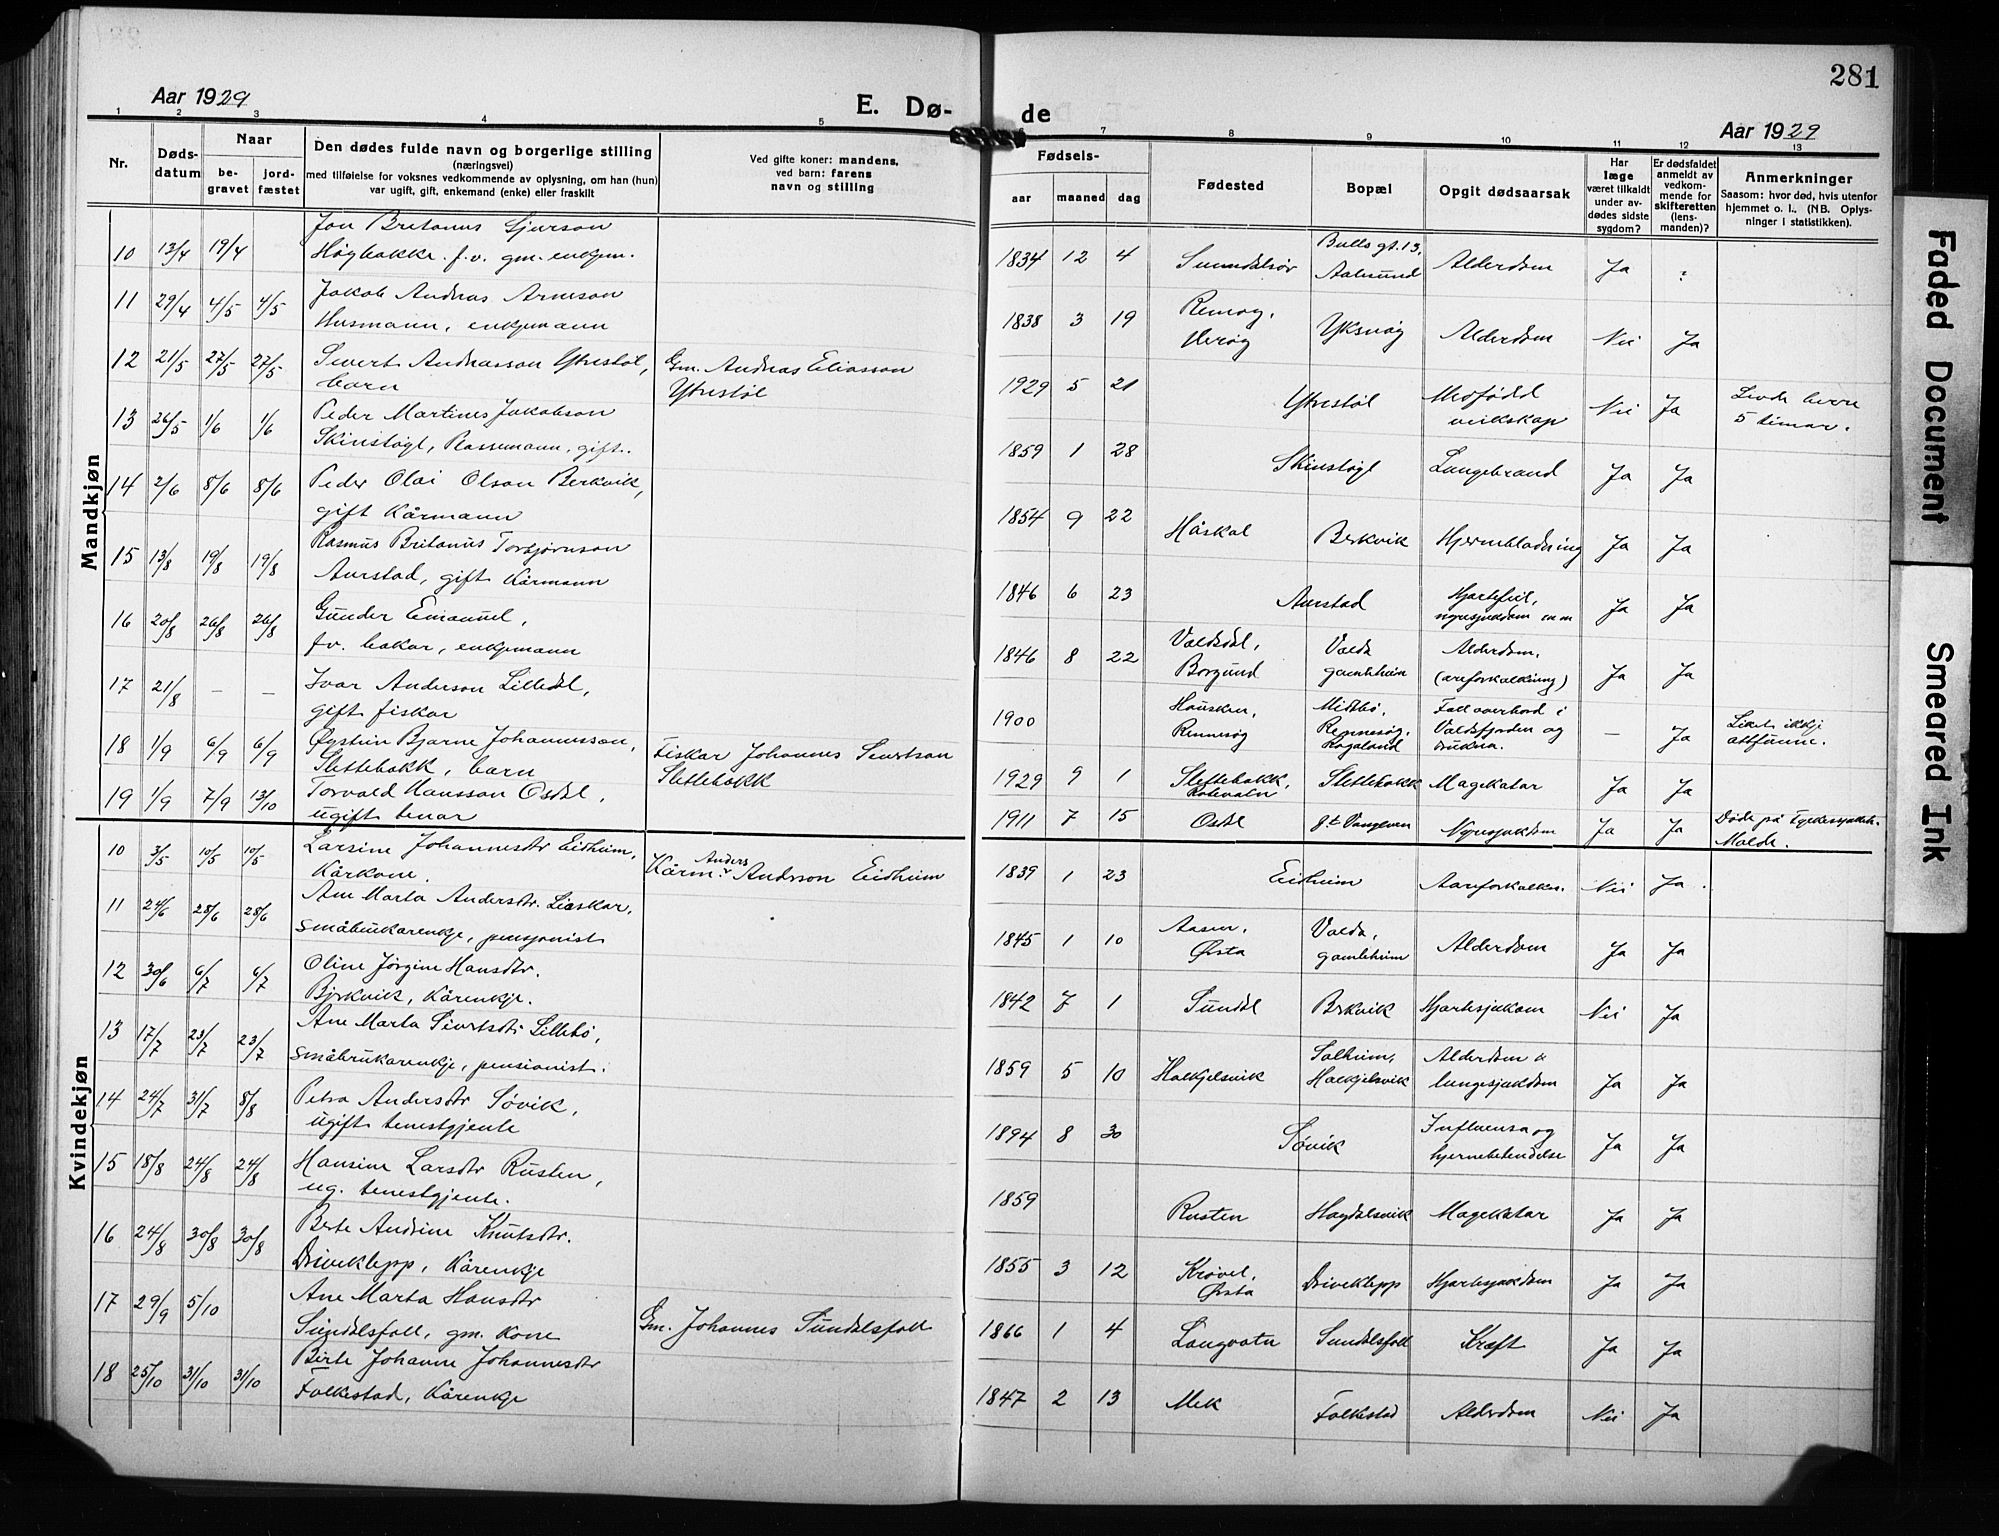 281
Aar 1929
E. Dø- de
Aar 1929
1 2 3 4 5 6 7 8 9 10 11 12 13
Nr.
Døds-
datum
Naar
be-
gravet
jord-
fæstet
Den dødes fulde navn og borgerlige stilling
(næringsvei)
med tilføielse for voksnes vedkommende av oplysning, om han (hun)
var ugift, gift, enkemand (enke) eller fraskilt
Ved gifte koner: mandens,
ved barn: farens
navn og stilling
Fødsels-
aar maaned dag
Fødested
Bopæl
Opgit dødsaarsak
Har
læge
været tilkaldt
under av-
dødes sidste
sygdom?
Er dødsfaldet
anmeldt av
vedkom-
mende for
skifteretten
(lens-
manden)?
Anmerkninger
Saasom: hvor død, hvis utenfor
hjemmet o. l.. (NB. Oplys-
ninger i statistikken).
Mandkjøn
10 13/4 19/4 Jon Britanus Sjurson 1834 12 4 Sunndalsør Bulls gt. 13, Alderdom Ja :
Høgbakke. f.v. gm. enkjm. Aalesund
11 29/4 4/5 4/5 Jakob Andreas Arneson 1838 3 19 Remøy, Yksnøy Alderdom Nei Ja
Husmann, enkjemann Herøy
12 21/5 27/5 27/5 Sivert Andreasson Ytrestøl, Gm. Andreas Eliasson 1929 5 21 Ytrestøl Medfødd Nei Ja Levde berre
barn Ytrestøl veikskap 5 timar.
13 26/5 1/6 1/6 Peder Martinus Jakobson 1859 1 28 Skinstøgl Lungebrand Ja Ja
Skinstøgl, gift.
14 2/6 8/6 8/6 Peder Olai Olson Berkvik, 1854 9 22 Håskol Berkvik Hjernebløding Ja Ja
gift Kårmann
15 13/8 19/8 19/8 Rasmus Britanus Torbjørnson 1846 6 23 Aurstad Hjartefeil, Ja Ja
Aurstad, gift Kårmann nyresjukdom m m
16 20/8 26/8 26/8 Gunder Emanuel, 1846 8 22 Valdsdal, Volda Alderdom, Ja Ja
fv. bakar, enkjemann Borgund gamleheim (areforkalkning)
17 21/8 – – Ivar Anderson Lilledal, 1900 Hausken, Midtbø, Fall overbord i – Ja Liket ikkje
gift fiskar Rennesøy Rennesøy, Rogaland Voldsfjorden og drukna. attfunne.
18 1/9 6/9 6/9 Øystein Bjarne Johannesson, Fiskar Johannes Sivertson 1929 9 1 Slettebakk, Slettebakk Magekatar Ja Ja
Slettebakk, barn Slettebakk
19 1/9 7/9 13/10 Torvald Hansson Osdal, 1911 7 15 Osdal Nyresjukdom Ja Ja Døde på Fylkessjukeh.
ugift tenar Molde.
Kvindekjøn
10 3/5 10/5 10/5 Larsine Johannesdtr Eidheim, Kårm. Anders Andrsson Eidheim 1839 1 23 Eidheim Aareforkalkn. Nei Ja.
Kårkone.
11 24/6 28/6 28/6 Ane Marta Andersdtr. Lieskar, 1845 1 10 Aasen, Volda, Alderdom Ja Ja
småbrukarenkje, pensjonist Ørsta gamleheim
12 30/6 6/7 6/7 Oline Jørgine Hansdtr. 1842 7 1 Sundal Brkvik Hjartesjukdom Nei Ja
Bjrkvik, Kårenkje.
13 17/7 23/7 23/7 Ane Marta Sivertsdtr Lillebø, 1859 5 10 Halkjelsvik Solheim, Alderdom & Ja Ja
småbrukarenkje, pensionist. Halkjelsvik lungesjukdom
14 24/7 31/7 8/8 Petra Andersdtr Søvik, 1894 8 30 Søvik Influensa og Ja Ja
ugift tenestgjente hjernebetendelse
15 18/8 24/8 24/8 Hansine Larsdtr Rusten, 1859 Rusten Høydalsvik Magekatar Ja Ja
ug. tenestgjente.
16 24/8 30/8 30/8 Berte Andrine Knutsdtr. 1855 3 12 Krøvel, Driveklepp Hjartesjukdom Ja Ja
Driveklepp, Kårenkje Ørsta
17 29/9 5/10 Ane Marta Hansdtr Gm. Johannes Sundalsfoll 1866 1 4 Langvatn Sundalsfoll Kræft Ja Ja
Sundalsfoll, gm. kone
18 25/10 31/10 31/10 Birte Johanne Johannesdtr 1847 2 13 Mek Folkestad Alderdom Nei Ja
Folkestad, Kårenkje
Faded Document
Smeared Ink